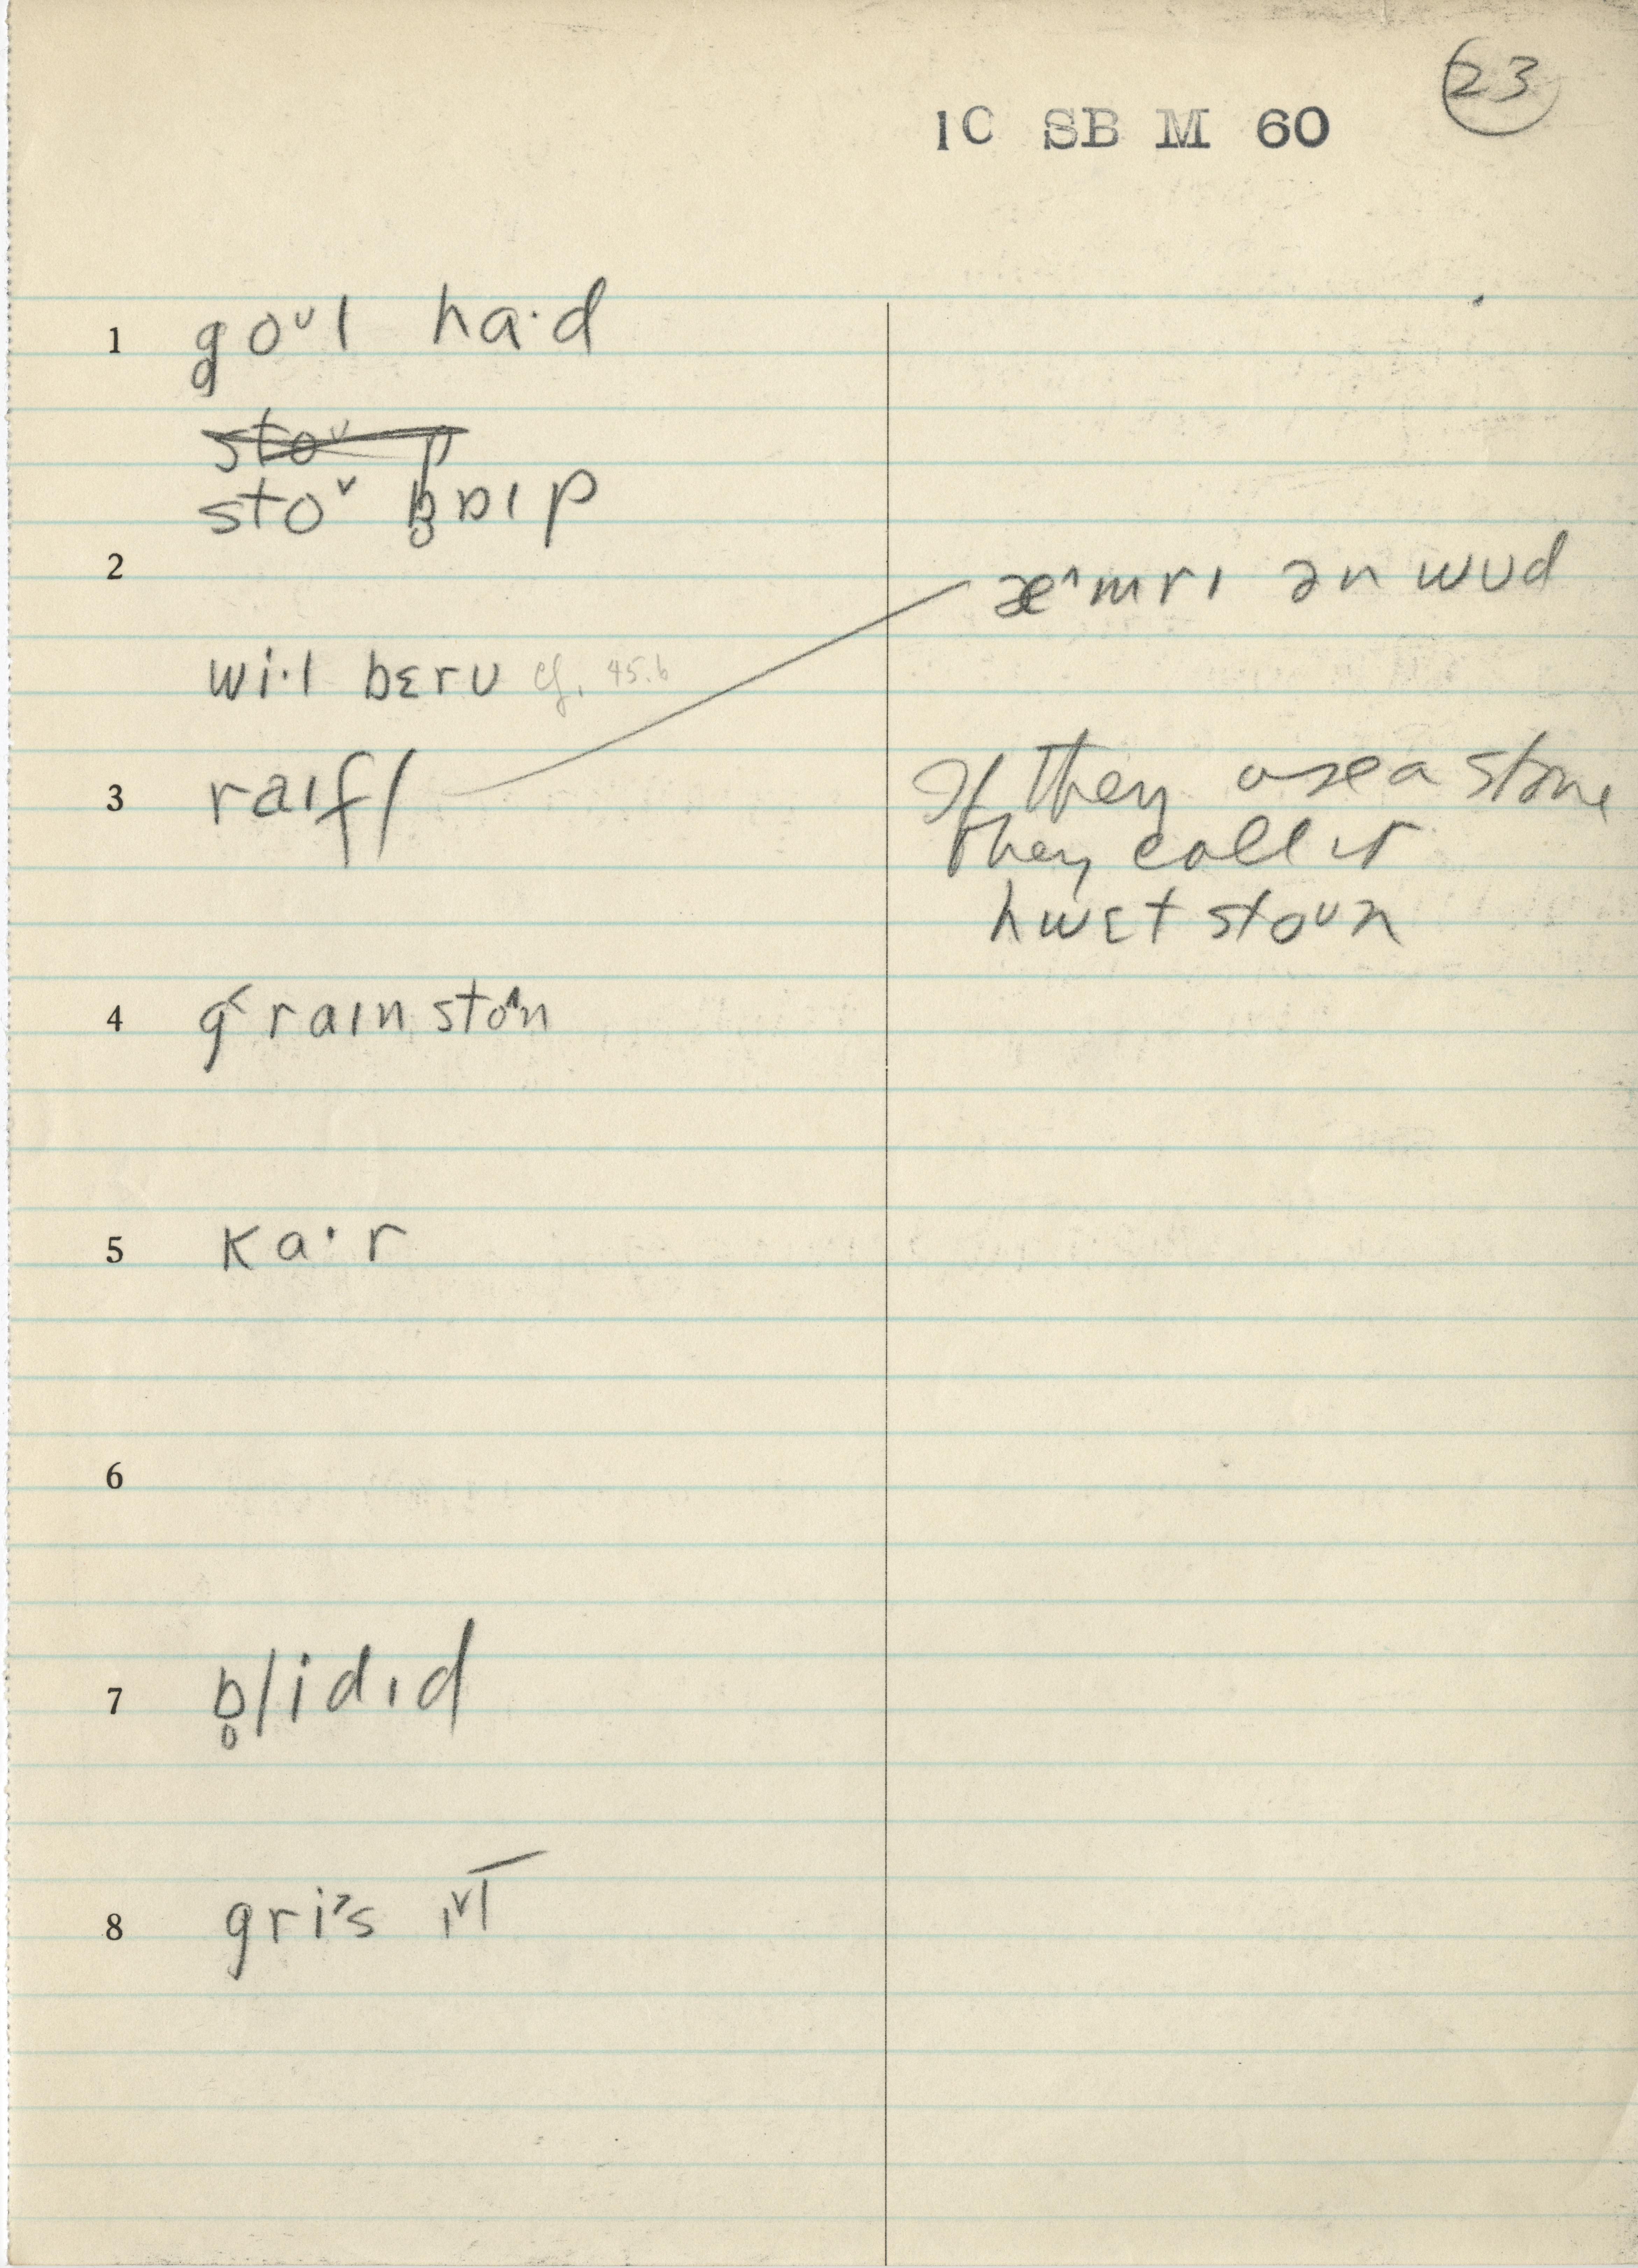 23
1C SB M 60
1 g̥oᴜl ha·d
stoᴜ p
stoᵛ b̥ɒɪp
2
æ^mrɪ ən wʊd
wi·l bɛrʊ cf. 45.6
3 raɪfl
If they use a stone
they call it
hwɛt stoᴜn
4 g˂raɪn sto^n
5 ka·r
6
7 b̥lidɪd
8 gri˃s ɪᵛl